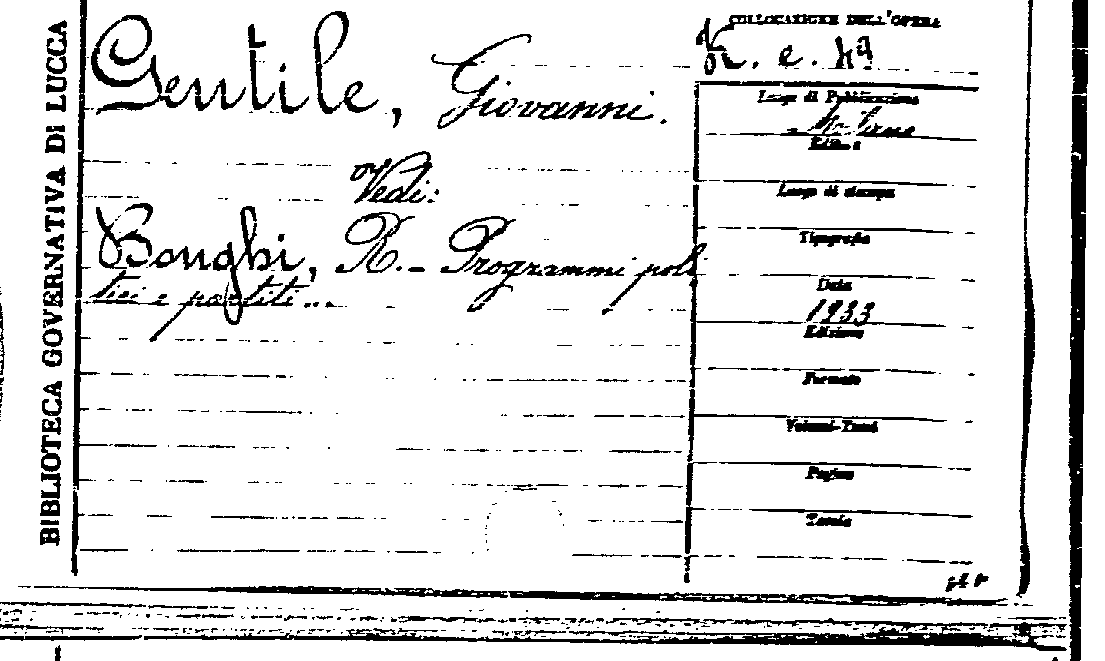 BIBLIOTECA GOVERNATIVA DI LUCCA
Gentile, Giovanni.
Vedi:
Bonghi, R. - Programmi poli
tici e partiti...
COLLOCAZIONE DELL'OPERA
K. e. 49
Luogo di Pubblicazione
Milano
Editore
Luogo di stampa
Tipografia
Data
1933
Edizione
Formato
Volumi-Tomi
Pagine
Tavole